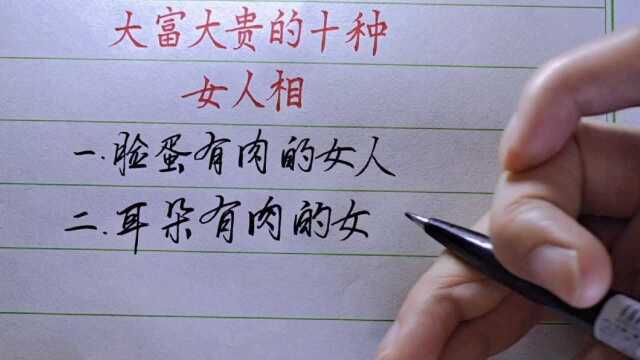 大富大贵的十种
女人相
一.脸蛋有肉的女人
二.耳朵有肉的女